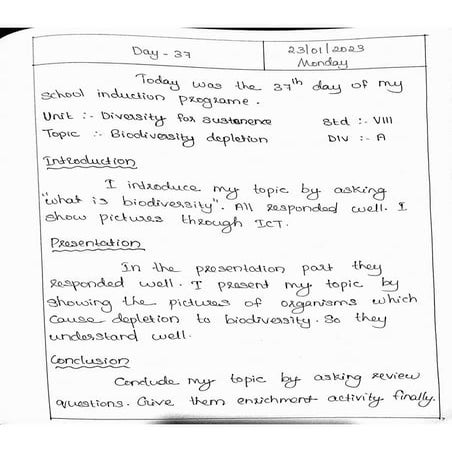 Day - 37
23/01/2023
Monday
Today was the 37th day of my
school induction programe.
Unit :- Diversity for sustenence
Std :- VIII
Topic :- Biodiversity depletion
DIV :- A
Introduction
I introduce my topic by asking
"what is biodiversity". All responded well. I
show pictures through ICT.
Presentation
In the presentation part they
responded well. I present my topic by
showing the pictures of organisms which
cause depletion to biodiversity. So they
understand well.
Conclusion
Conclude my topic by asking review
questions. Give them enrichment activity finally.